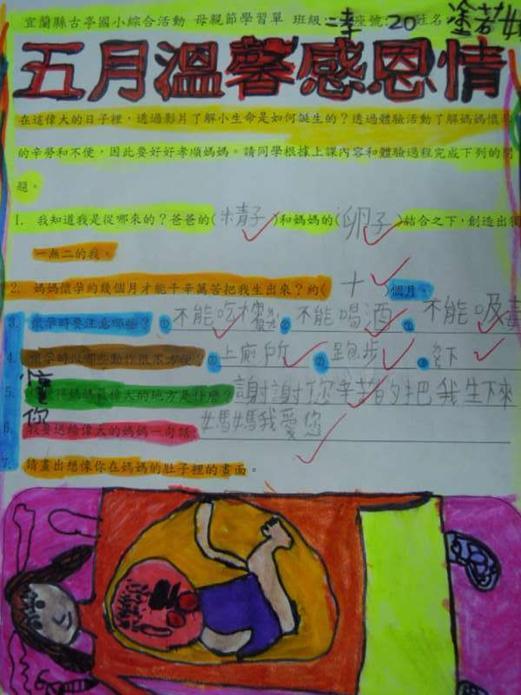 宜蘭縣古亭國小綜合活動 母親節學習單 班級: 二孝 座號: 20 姓名: 塗若
五月溫馨感恩情
在這偉大的日子裡,透過影片了解小生命是如何誕生的?透過體驗活動了解媽媽懷孕
的辛勞和不便,因此要好好孝順媽媽。請同學根據上課內容和體驗過程完成下列的問
題。
1. 我知道我是從哪來的?爸爸的(精子)和媽媽的(卵子)結合之下,創造出獨
一無二的我。
2. 媽媽懷孕約幾個月才能千辛萬苦把我生出來?約(十)個月。
3. 懷孕時要注意哪些?①不能吃檳 ②不能喝酒 ③不能吸毒
4. 懷孕時做哪些動作很不方便?①上廁所 ②跑步 ③ 下
5. 懂得媽媽最偉大的地方是什麼?謝謝您辛苦的把我生下來
6. 我要送給偉大的媽媽一句話: 媽媽我愛您
你
7. 請畫出想像你在媽媽的肚子裡的畫面。